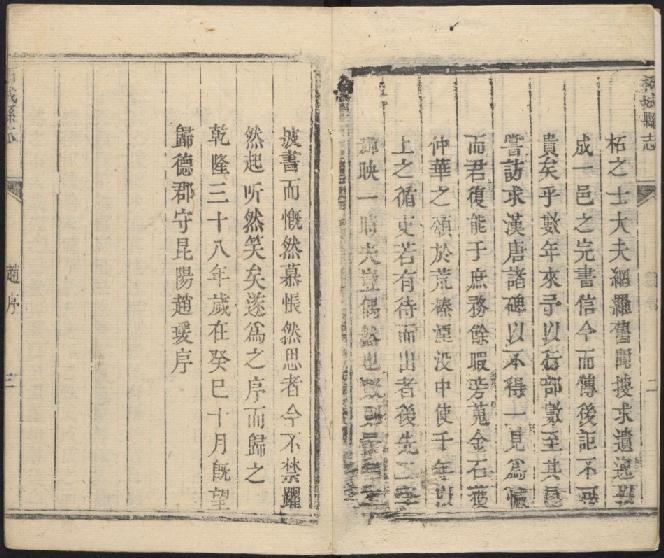 柘城縣志
柘之士大夫網羅舊聞搜求遺逸
成一邑之完書信今而傳後詎不
貴矣乎數年來予以行部數至其邑
嘗訪求漢唐諸碑以不得一見為憾
而君復能于庶務餘暇旁蒐金石獲
仲華之頌於荒榛湮没中使千年以
上之循吏若有待而出者後先二
輝映一時夫豈偶然也
二
披書而慨然慕悵然思者今不禁躍
然起听然笑矣遂為之序而歸之
乾隆三十八年歲在癸巳十月既望
歸德郡守昆陽趙瑗序
城縣志
趙序
三